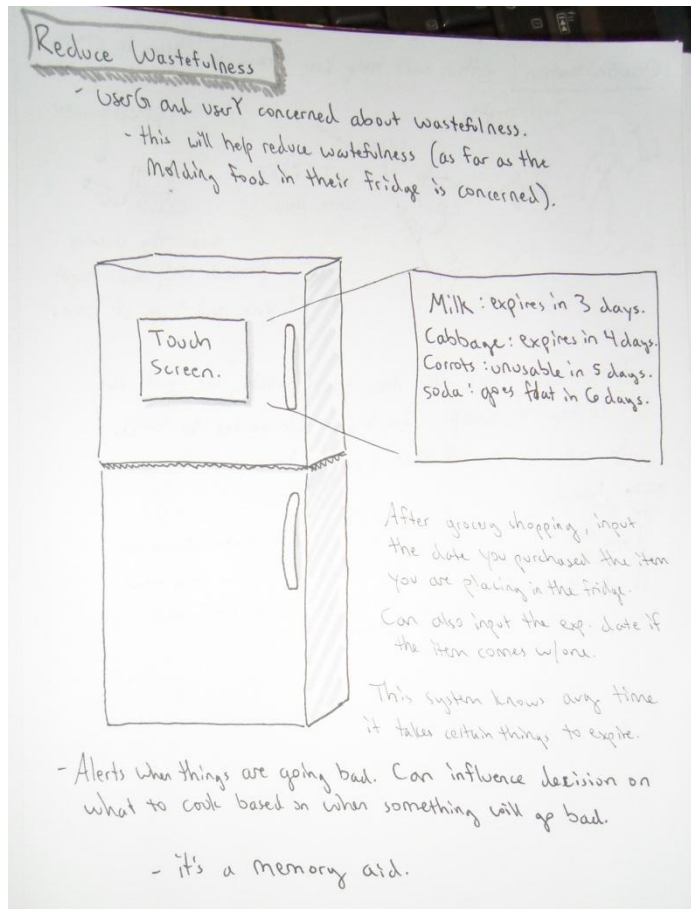 Reduce Wastefulness
- UserG and userY concerned about wastefulness.
- this will help reduce wastefulness (as far as the
Molding food in their fridge is concerned).
Touch
Screen.
Milk : expires in 3 days.
Cabbage : expires in 4 days.
Corrots : unusable in 5 days.
soda : goes flat in 6 days.
After grocery shopping, input
the date you purchased the item
you are placing in the fridge.
Can also input the exp. date if
the item comes w/one.
This system knows avg time
it takes certain things to expire.
- Alerts when things are going bad. Can influence decision on
what to cook based on when something will go bad.
- it's a memory aid.